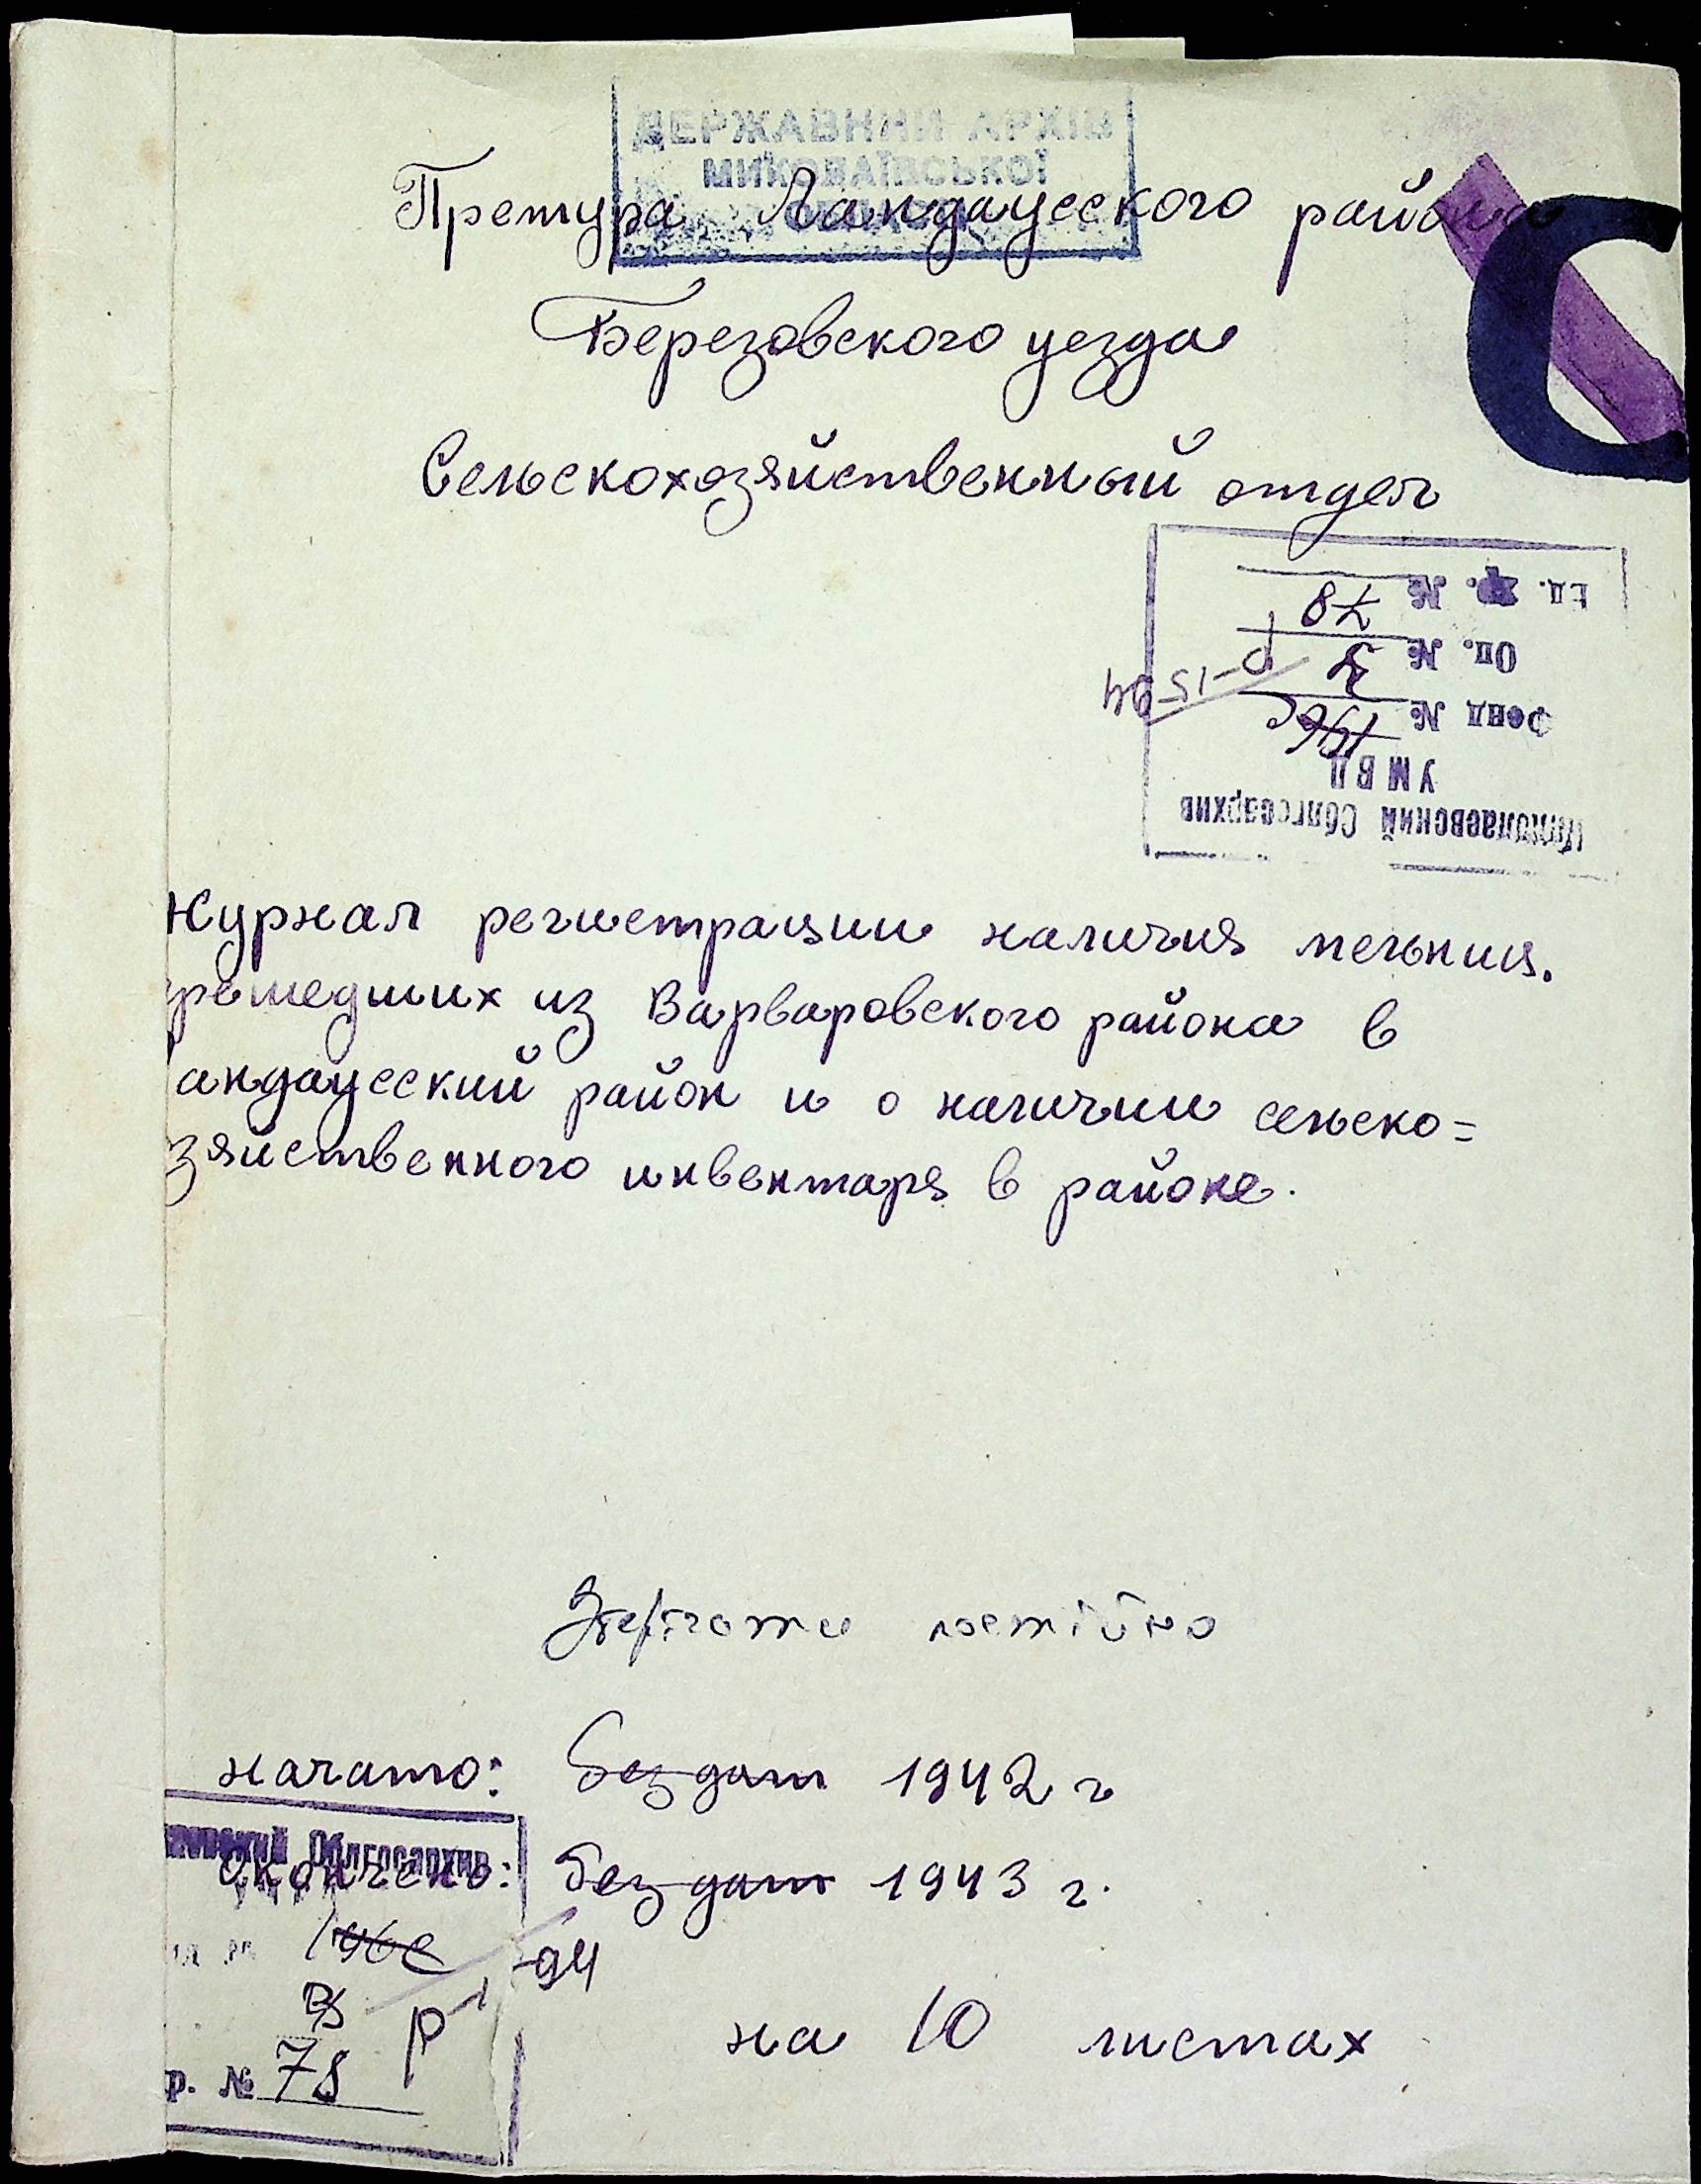 ДЕРЖАВНИЙ АРХІВ
МИКОЛАЇВСЬКОЇ
Претура Ландауесского района
Березовского уезда
Сельскохозяйственный отдел
С
Николаевский Облгосархив
УМВД
Фонд № 196с
Оп. №
Ед. хр. № 78
Журнал регистрации наличия мельниц.
решедших из Варваровского района в
андауесский район и о наличии сельско=
зяйственного инвентаря в районе.
Зберігати постійно
начато: без дат 1942 г
Облгосархив
окончено: без дат 1943 г.
196с
-94
р. № 78
на 10 листах